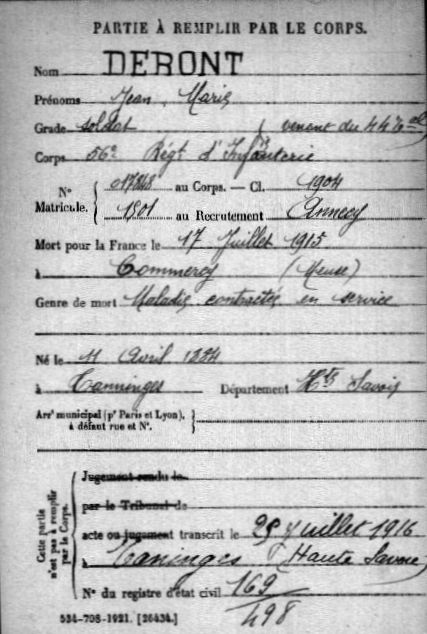 PARTIE À REMPLIR PAR LE CORPS.
Nom DERONT
Prénoms Jean Marie
Grade soldat (venant du 44e
Corps 56e Régt d'Infanterie
N° Matricule. { 017848 au Corps. — Cl. 1904
1501 au Recrutement Annecy
Mort pour la France le 17 Juillet 1915
à Commercy (Meuse)
Genre de mort Maladie contractée en service
Né le 11 Avril 1884
à Tanninges Département Hte Savoie
Arrt municipal (pr Paris et Lyon), à défaut rue et N°. }
Cette partie n'est pas à remplir par le Corps.
Jugement rendu le
par le Tribunal de
acte ou jugement transcrit le 29 Juillet 1916
à Taninges (Haute Savoie)
N° du registre d'état civil 169
498
534-708-1921. [26434.]